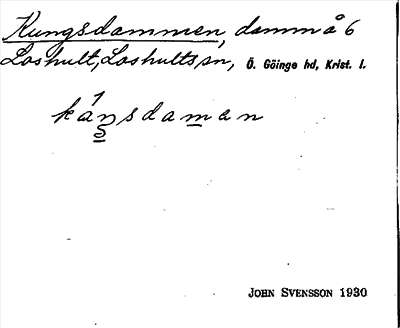 Kungsdammen, damm å 6
Loshult, Loshults sn, Ö. Göinge hd, Krist. l.
kåŋsdaman
JOHN SVENSSON 1930